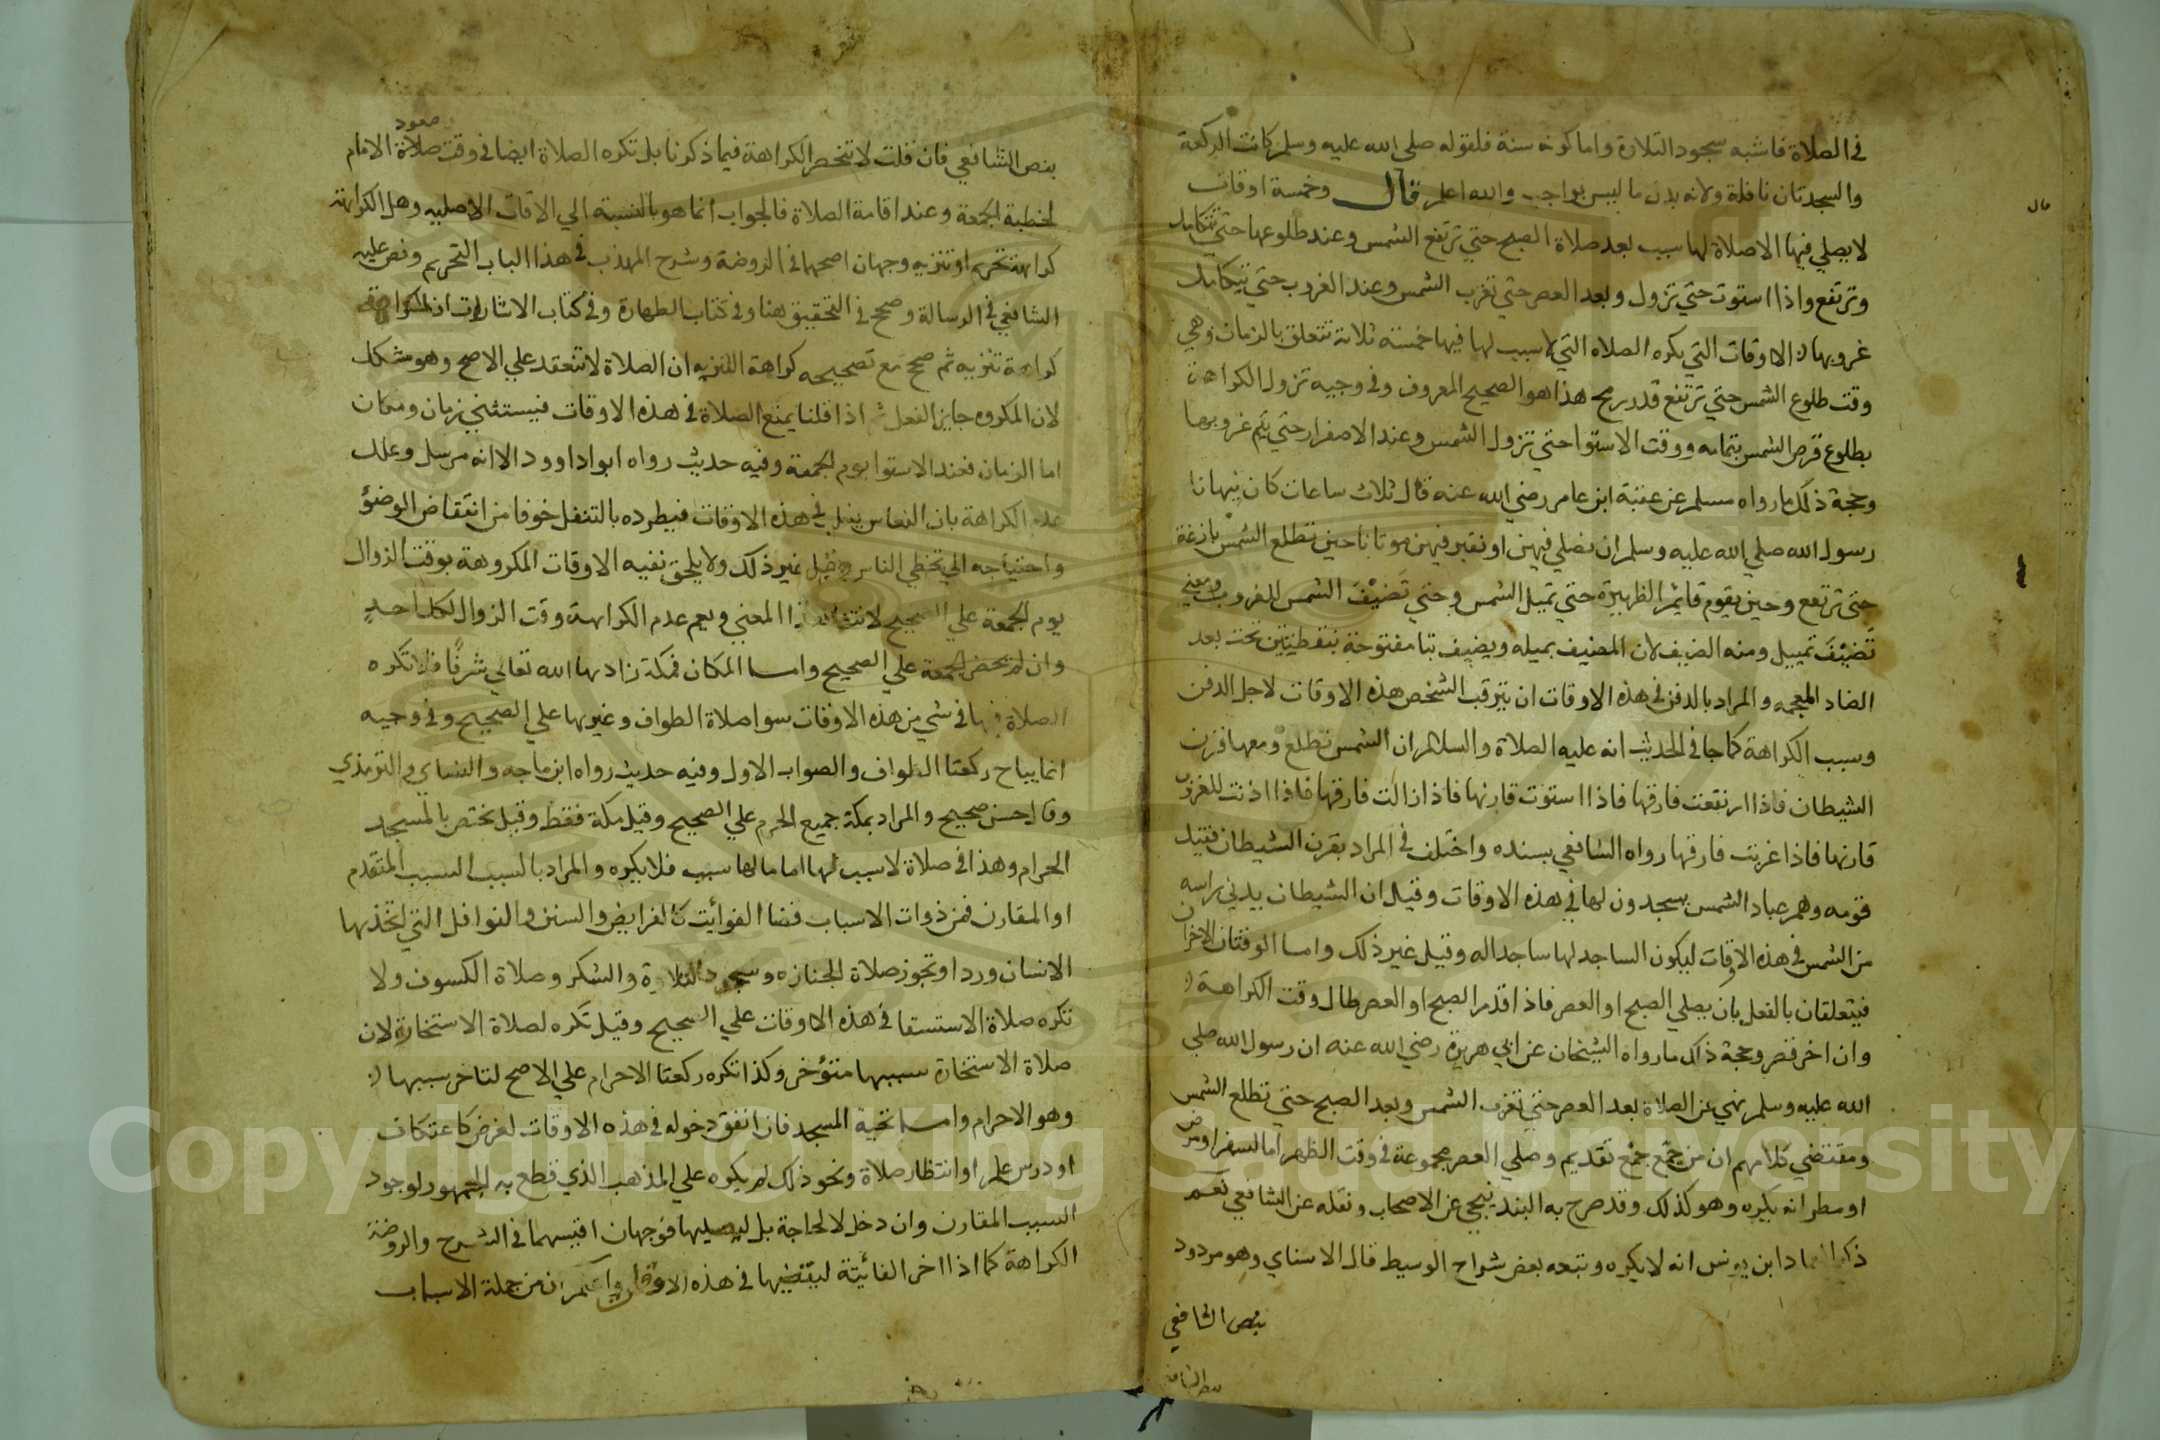 في الصلاة فاشبه سجود التلاوة واما كونه سنة فلقوله صلي الله عليه وسلم كانت الركعة
والسجدتان نافلة ولانه بدل ما ليس بواجب والله اعلم قال وخمسة اوقات
لا يصلي فيها الا صلاة لها سبب بعد صلاة الصبح حتي ترتفع الشمس وعند طلوعها حتي تتكامل
وترتفع واذا استوت حتي تزول وبعد العصر حتي تغرب الشمس وعند الغروب حتي يتكامل
غروبها الاوقات التي يكره الصلاه التي لا سبب لها فيها خمسة ثلاثة تتعلق بالزمان وهي
وقت طلوع الشمس حتي ترتفع قدر رمح هذا هو الصحيح المعروف وفي وجيه تزول الكراهة
بطلوع قرص الشمس بتمامه ووقت الاستوا حتي تزول الشمس وعند الاصفرار حتي يتم غروبها
وحجة ذلك ما رواه مسلم عن عتبة ابن عامر رضي الله عنه قال ثلاث ساعات كان ينهانا
رسول الله صلي الله عليه وسلم ان نصلي فيهن او نقبر فيهن موتانا حين تطلع الشمس بازغة
حتي ترتفع وحين يقوم قايم الظهيرة حتي تميل الشمس وحتي تضيف الشمس للغروب ومعني
تضيف تميل ومنه الضيف لان المضيف يميله ويضيف بتا مفتوحة بنقطتين تحت بعد
الضاد المعجمه والمراد بالدفن في هذه الاوقات ان يترقب الشخص هذه الاوقات لاجل الدفن
وسبب الكراهة كما جا في الحديث انه عليه الصلاة والسلام ان الشمس تطلع ومعها قرن
الشيطان فاذا ارتفعت فارقها فاذا استوت قارنها فاذا زالت فارقها فاذا اذنت للغروب
قارنها فاذا غربت فارقها رواه الشافعي بسنده واختلف في المراد بقرن الشيطان فقيل
قومه وهم عباد الشمس يسجدون لها في هذه الاوقات وقيل ان الشيطان يدني راسه
من الشمس في هذه الاوقات ليكون الساجد لها ساجدا له وقيل غير ذلك واما الوقتان الاخران
فيتعلقان بالفعل بان يصلي الصبح او العصر فاذا قدم الصبح او العصر طال وقت الكراهة
وان اخر قصر وحجة ذلك ما رواه الشيخان عن ابي هريرة رضي الله عنه ان رسول الله صلي
الله عليه وسلم نهي عن الصلاة بعد العصر حتي تغرب الشمس وبعد الصبح حتي تطلع الشمس
ومقتضي كلامهم ان من جمع جمع تقديم وصلي العصر مجموعة في وقت الظهر اما لسفر او مرض
او مطر انه يكره وهو كذلك وقد صرح به البندنيجي عن الاصحاب ونقله عن الشافعي نعم
ذكر العماد ابن يونس انه لا يكره وتبعه بعض شراح الوسيط قال الاسناي وهو مردود
بنص الشافعي
قال
بنص الشافعي فان قلت لا تنحصر الكراهة فيما ذكرنا بل تكره الصلاة ايضا في وقت صلاة الامام
صعود
لخطبة الجمعة وعند اقامة الصلاة فالجواب انما هو بالنسبة الي الاقات الاصليه وهل الكراهة
كراهة تحريم او تنزيه وجهان اصحهما في الروضة وشرح المهذب في هذا الباب التحريم ونص عليه
الشافعي في الرسالة وصحح في التحقيق هنا وفي كتاب الطهارة وفي كتاب الاشارات ان الكراهة
كراهة تنزيه ثم صحح مع تصحيحه كراهة التنزيه ان الصلاة لا تنعقد علي الاصح وهو مشكل
لان المكروه جايز الفعل ثم اذا قلنا يمنع الصلاة في هذه الاوقات فيستثني زمان ومكان
اما الزمان فعند الاستوا يوم الجمعة وفيه حديث رواه ابو داوود الا انه مرسل وعلل
عدم الكراهة بان النعاس ينزل في هذه الاوقات فيطرده بالتنفل خوفا من انتقاض الوضوء
واحتياجه الي تخطي الناس وقيل غير ذلك ولا يلحق بقيه الاوقات المكروهة بوقت الزوال
يوم الجمعة علي الصحيح لانتفا هذا المعني ويعم عدم الكراهة وقت الزوال لكل احد
وان لم يحضر الجمعة علي الصحيح واما المكان فمكة زادها الله تعالي شرفا فلا تكره
الصلاة فيها في شي من هذه الاوقات سوا صلاة الطواف وغيرها علي الصحيح وفي وجيه
انما يباح ركعتا الطواف والصواب الاول وفيه حديث رواه ابن ماجه والنساي والترمذي
وقال حسن صحيح والمراد بمكة جميع الحرم علي الصحيح وقيل مكة فقط وقيل يختص بالمسجد
الحرام وهذا في صلاة لا سبب لها اما ما لها سبب فلا يكره والمراد بالسبب السبب المتقدم
او المقارن فمن ذوات الاسباب قضا الفوائت كالفرايض والسنن والنوافل التي اتخذها
الانسان وردا وتجوز صلاة الجنازه وسجود التلاوة والشكر وصلاة الكسوف ولا
تكره صلاة الاستسقا في هذه الاوقات علي الصحيح وقيل تكره لصلاة الاستخارة لان
صلاة الاستخارة سببها متؤخر وكذا تكره ركعتا الاحرام علي الاصح لتاخر سببها
وهو الاحرام واما تحية المسجد فان اتفق دخوله في هذه الاوقات لغرض كاعتكاف
او درس علم او انتظار صلاة ونحو ذلك لم يكره علي المذهب الذي قطع به الجمهور لوجود
السبب المقارن وان دخل لا لحاجة بل ليصليها فوجهان اقيسهما في الشرح والروضة
الكراهة كما اذا اخر الفائيتة ليقضيها في هذه الاوقات واعلم ان من جملة الاسباب
Copyright © King Saud University